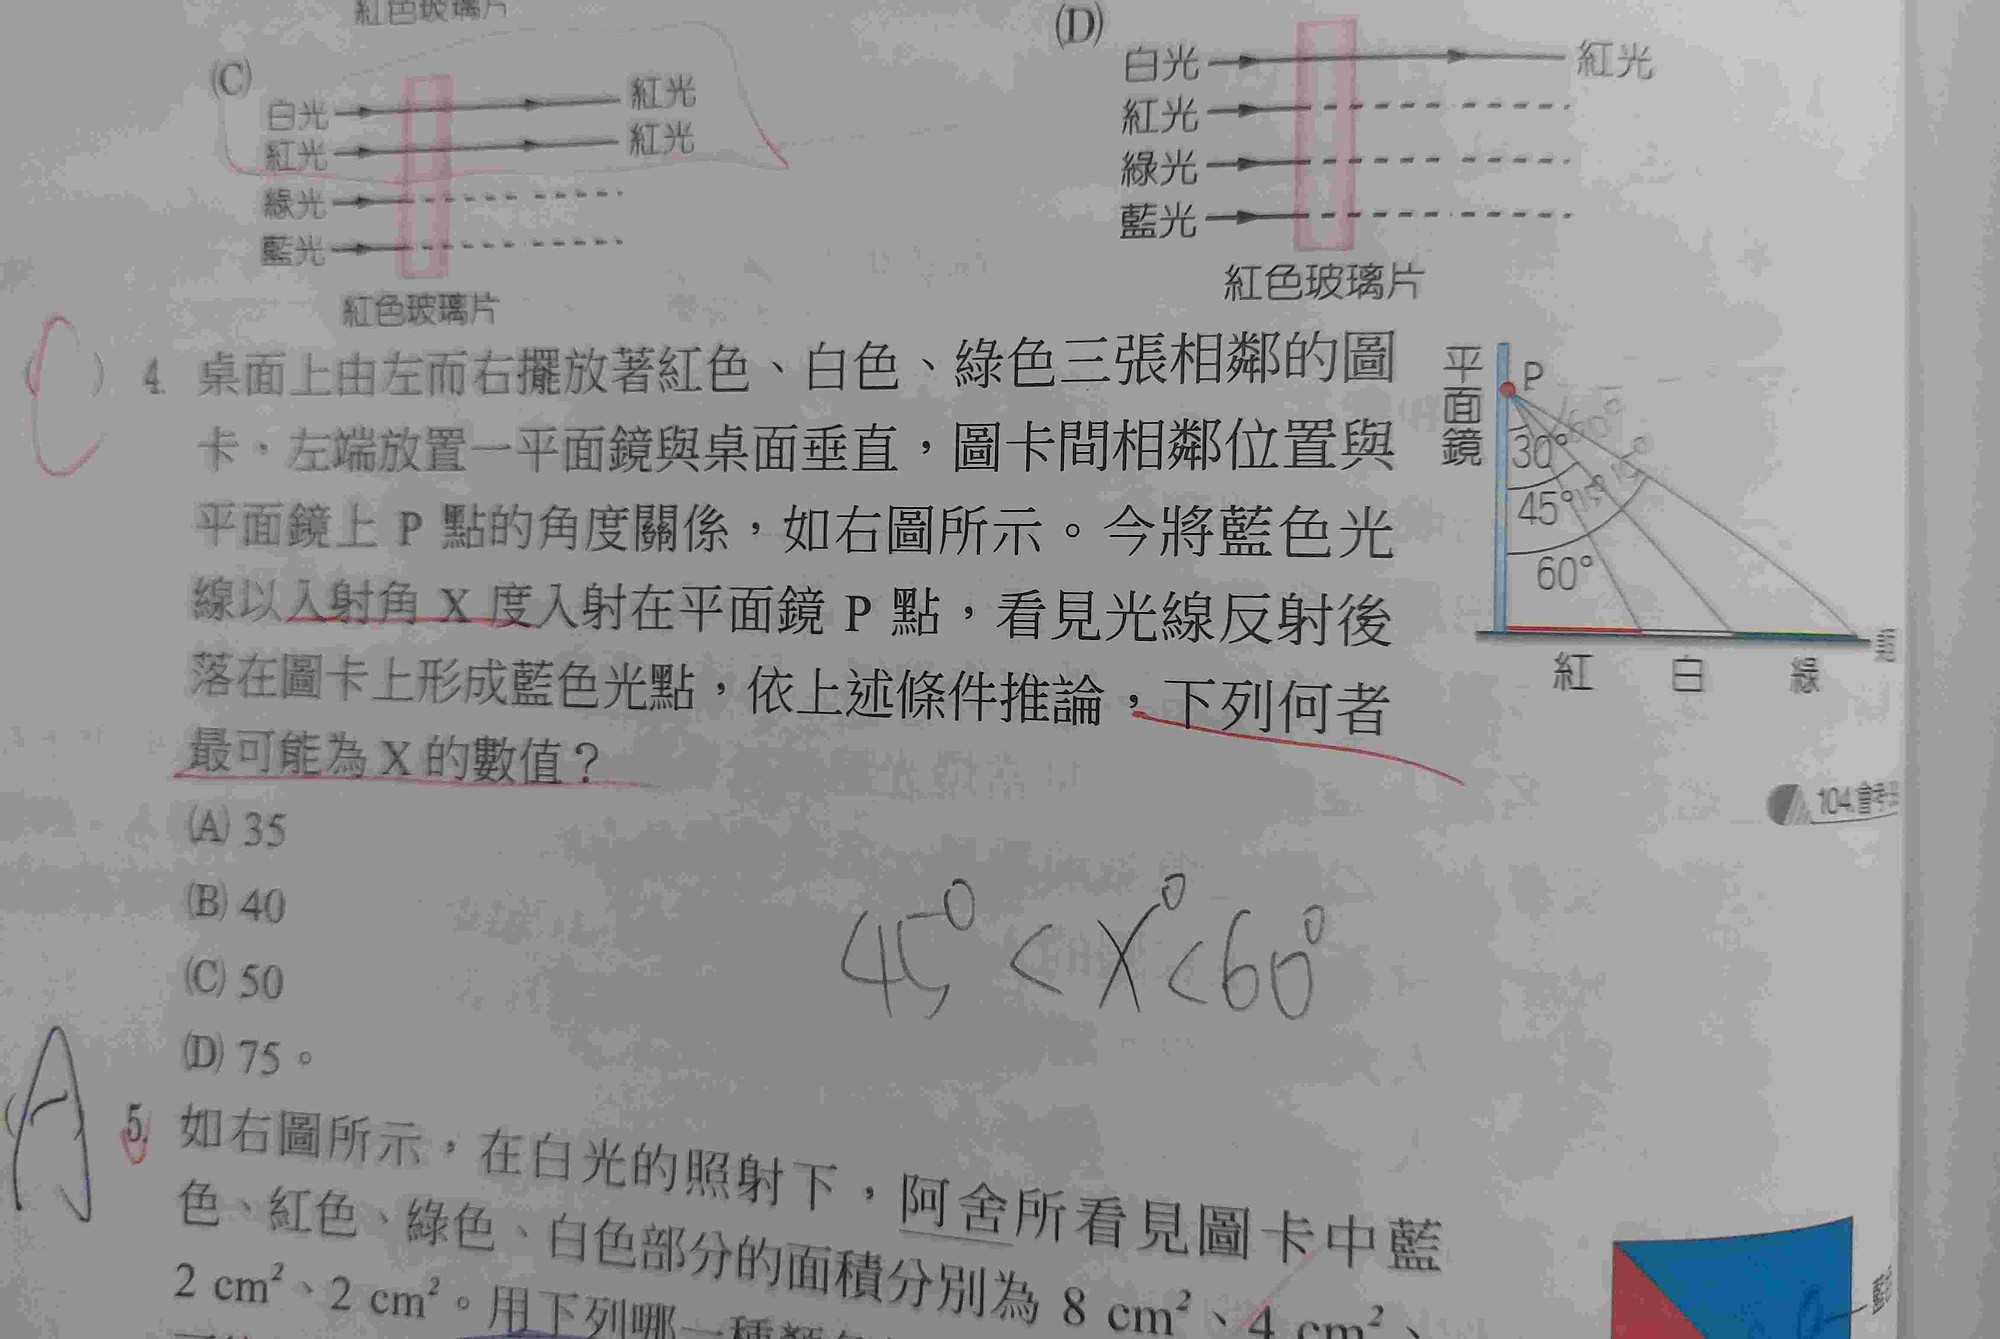 紅色玻璃片
(C)
白光 紅光
紅光 紅光
綠光
藍光
紅色玻璃片
(D)
白光 紅光
紅光
綠光
藍光
紅色玻璃片
C
4. 桌面上由左而右擺放著紅色、白色、綠色三張相鄰的圖
卡,左端放置一平面鏡與桌面垂直,圖卡間相鄰位置與
平面鏡上 P 點的角度關係,如右圖所示。今將藍色光
線以入射角 X 度入射在平面鏡 P 點,看見光線反射後
落在圖卡上形成藍色光點,依上述條件推論,下列何者
最可能為 X 的數值?
平面鏡
P
30°
60°
45°
15°
60°
紅 白 綠
104.會考
(A) 35
(B) 40
(C) 50
(D) 75。
45° < X° < 60°
A
5. 如右圖所示,在白光的照射下,阿舍所看見圖卡中藍
色、紅色、綠色、白色部分的面積分別為 8 cm²、4 cm²、
2 cm²、2 cm²。用下列哪一種顏色
藍